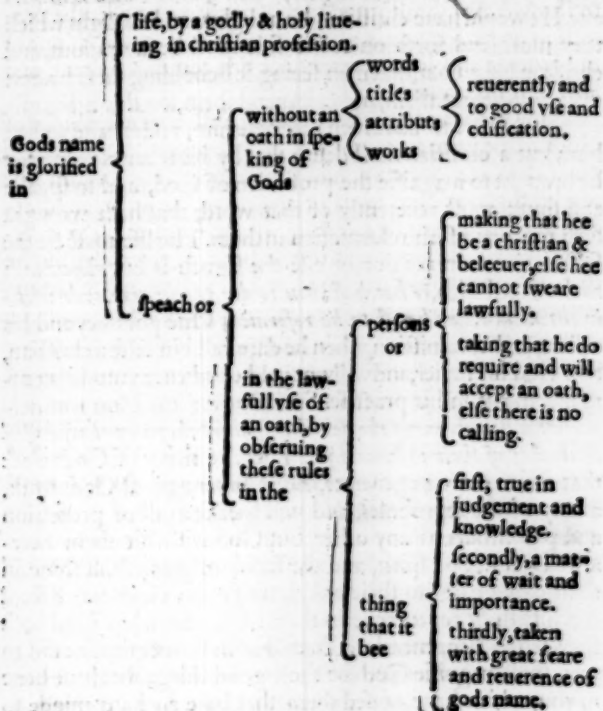 Gods name
is glorified
in
life, by a godly & holy liue-
ing in chriſtian profeſſion.
ſpeach or
without an
oath in ſpe-
king of
Gods
words
titles
attributs
works
reuerently and
to good vſe and
edification.
in the law-
full vſe of
an oath, by
obſeruing
theſe rules
in the
perſons
or
making that hee
be a chriſtian &
beleeuer, elſe hee
cannot ſweare
lawfully.
taking that he do
require and will
accept an oath,
elſe there is no
calling.
thing
that it
bee
firſt, true in
judgement and
knowledge.
ſecondly, a mat-
ter of wait and
importance.
thirdly, taken
with great feare
and reuerence of
gods name.